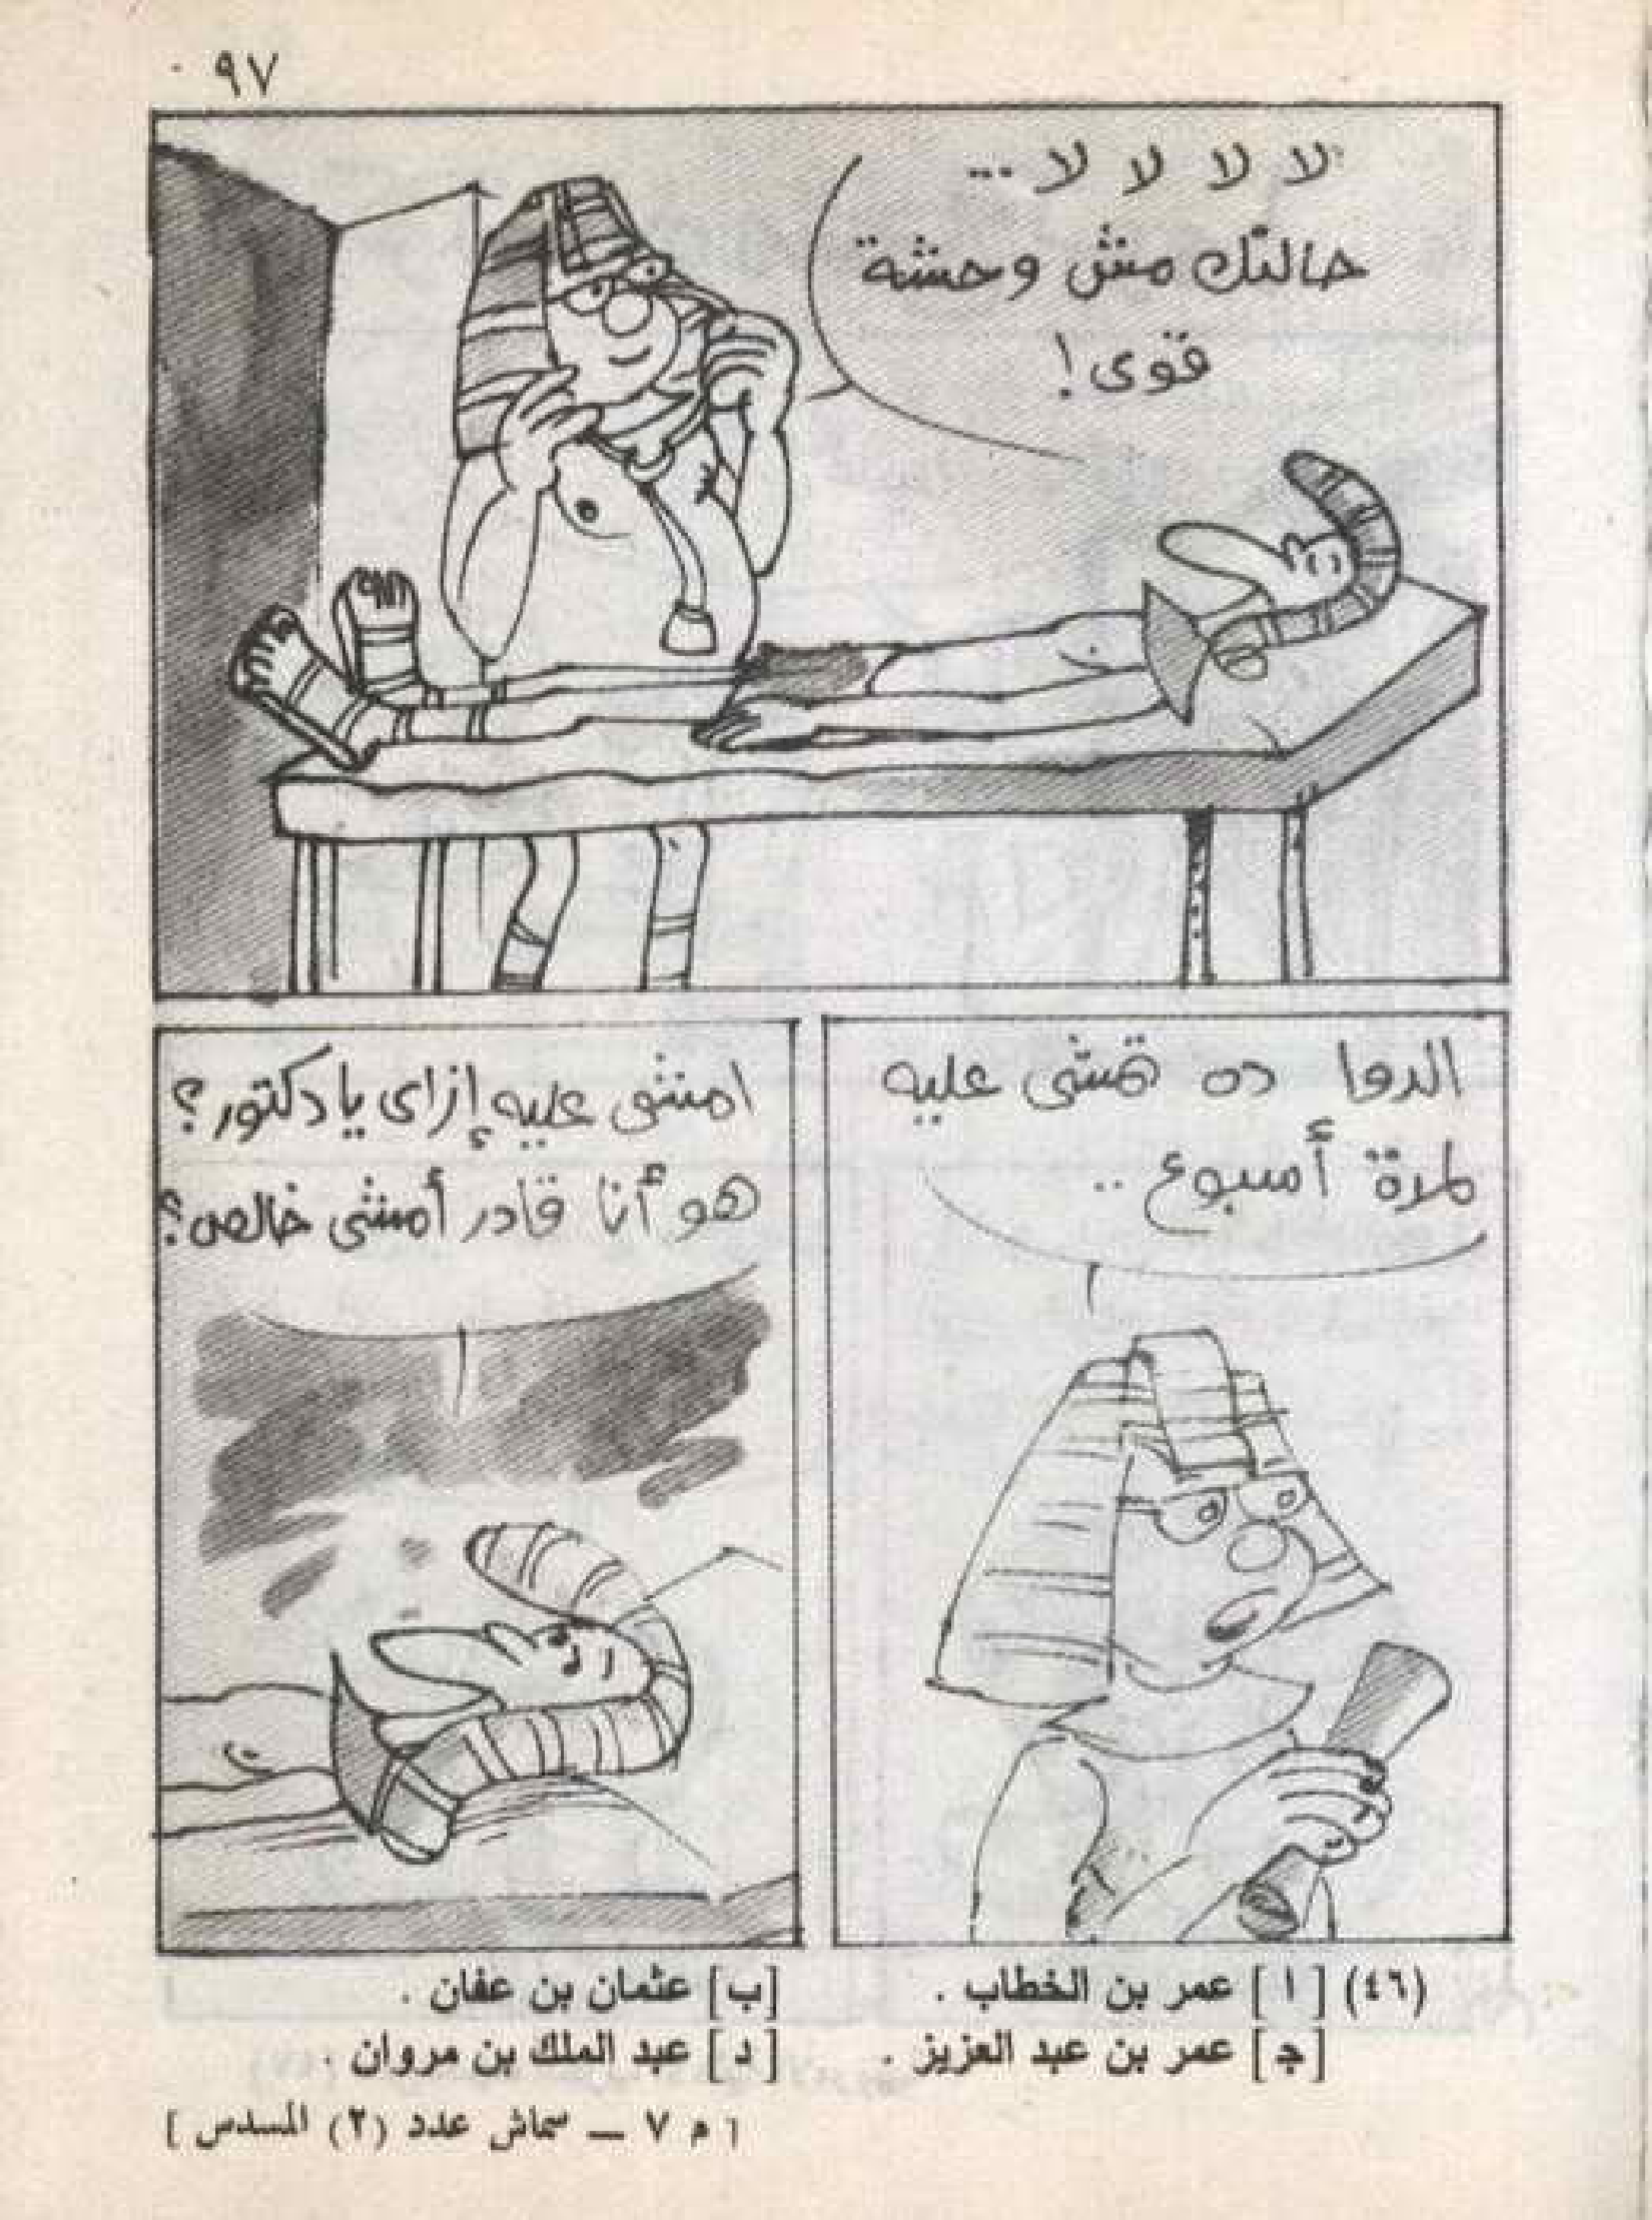 ٩٧
لا لا لا لا ...
حالتك مش وحشة
قوى !
الدوا ده تمشى عليه
لمدة أسبوع ..
امشى عليه إزاى يا دكتور ؟
هو أنا قادر أمشى خالص ؟
(٤٦) [ ا ] عمر بن الخطاب . [ب] عثمان بن عفان .
[جـ] عمر بن عبد العزيز . [د] عبد الملك بن مروان .
[ م ٧ ــ سماش عدد (٢) المسدس ]